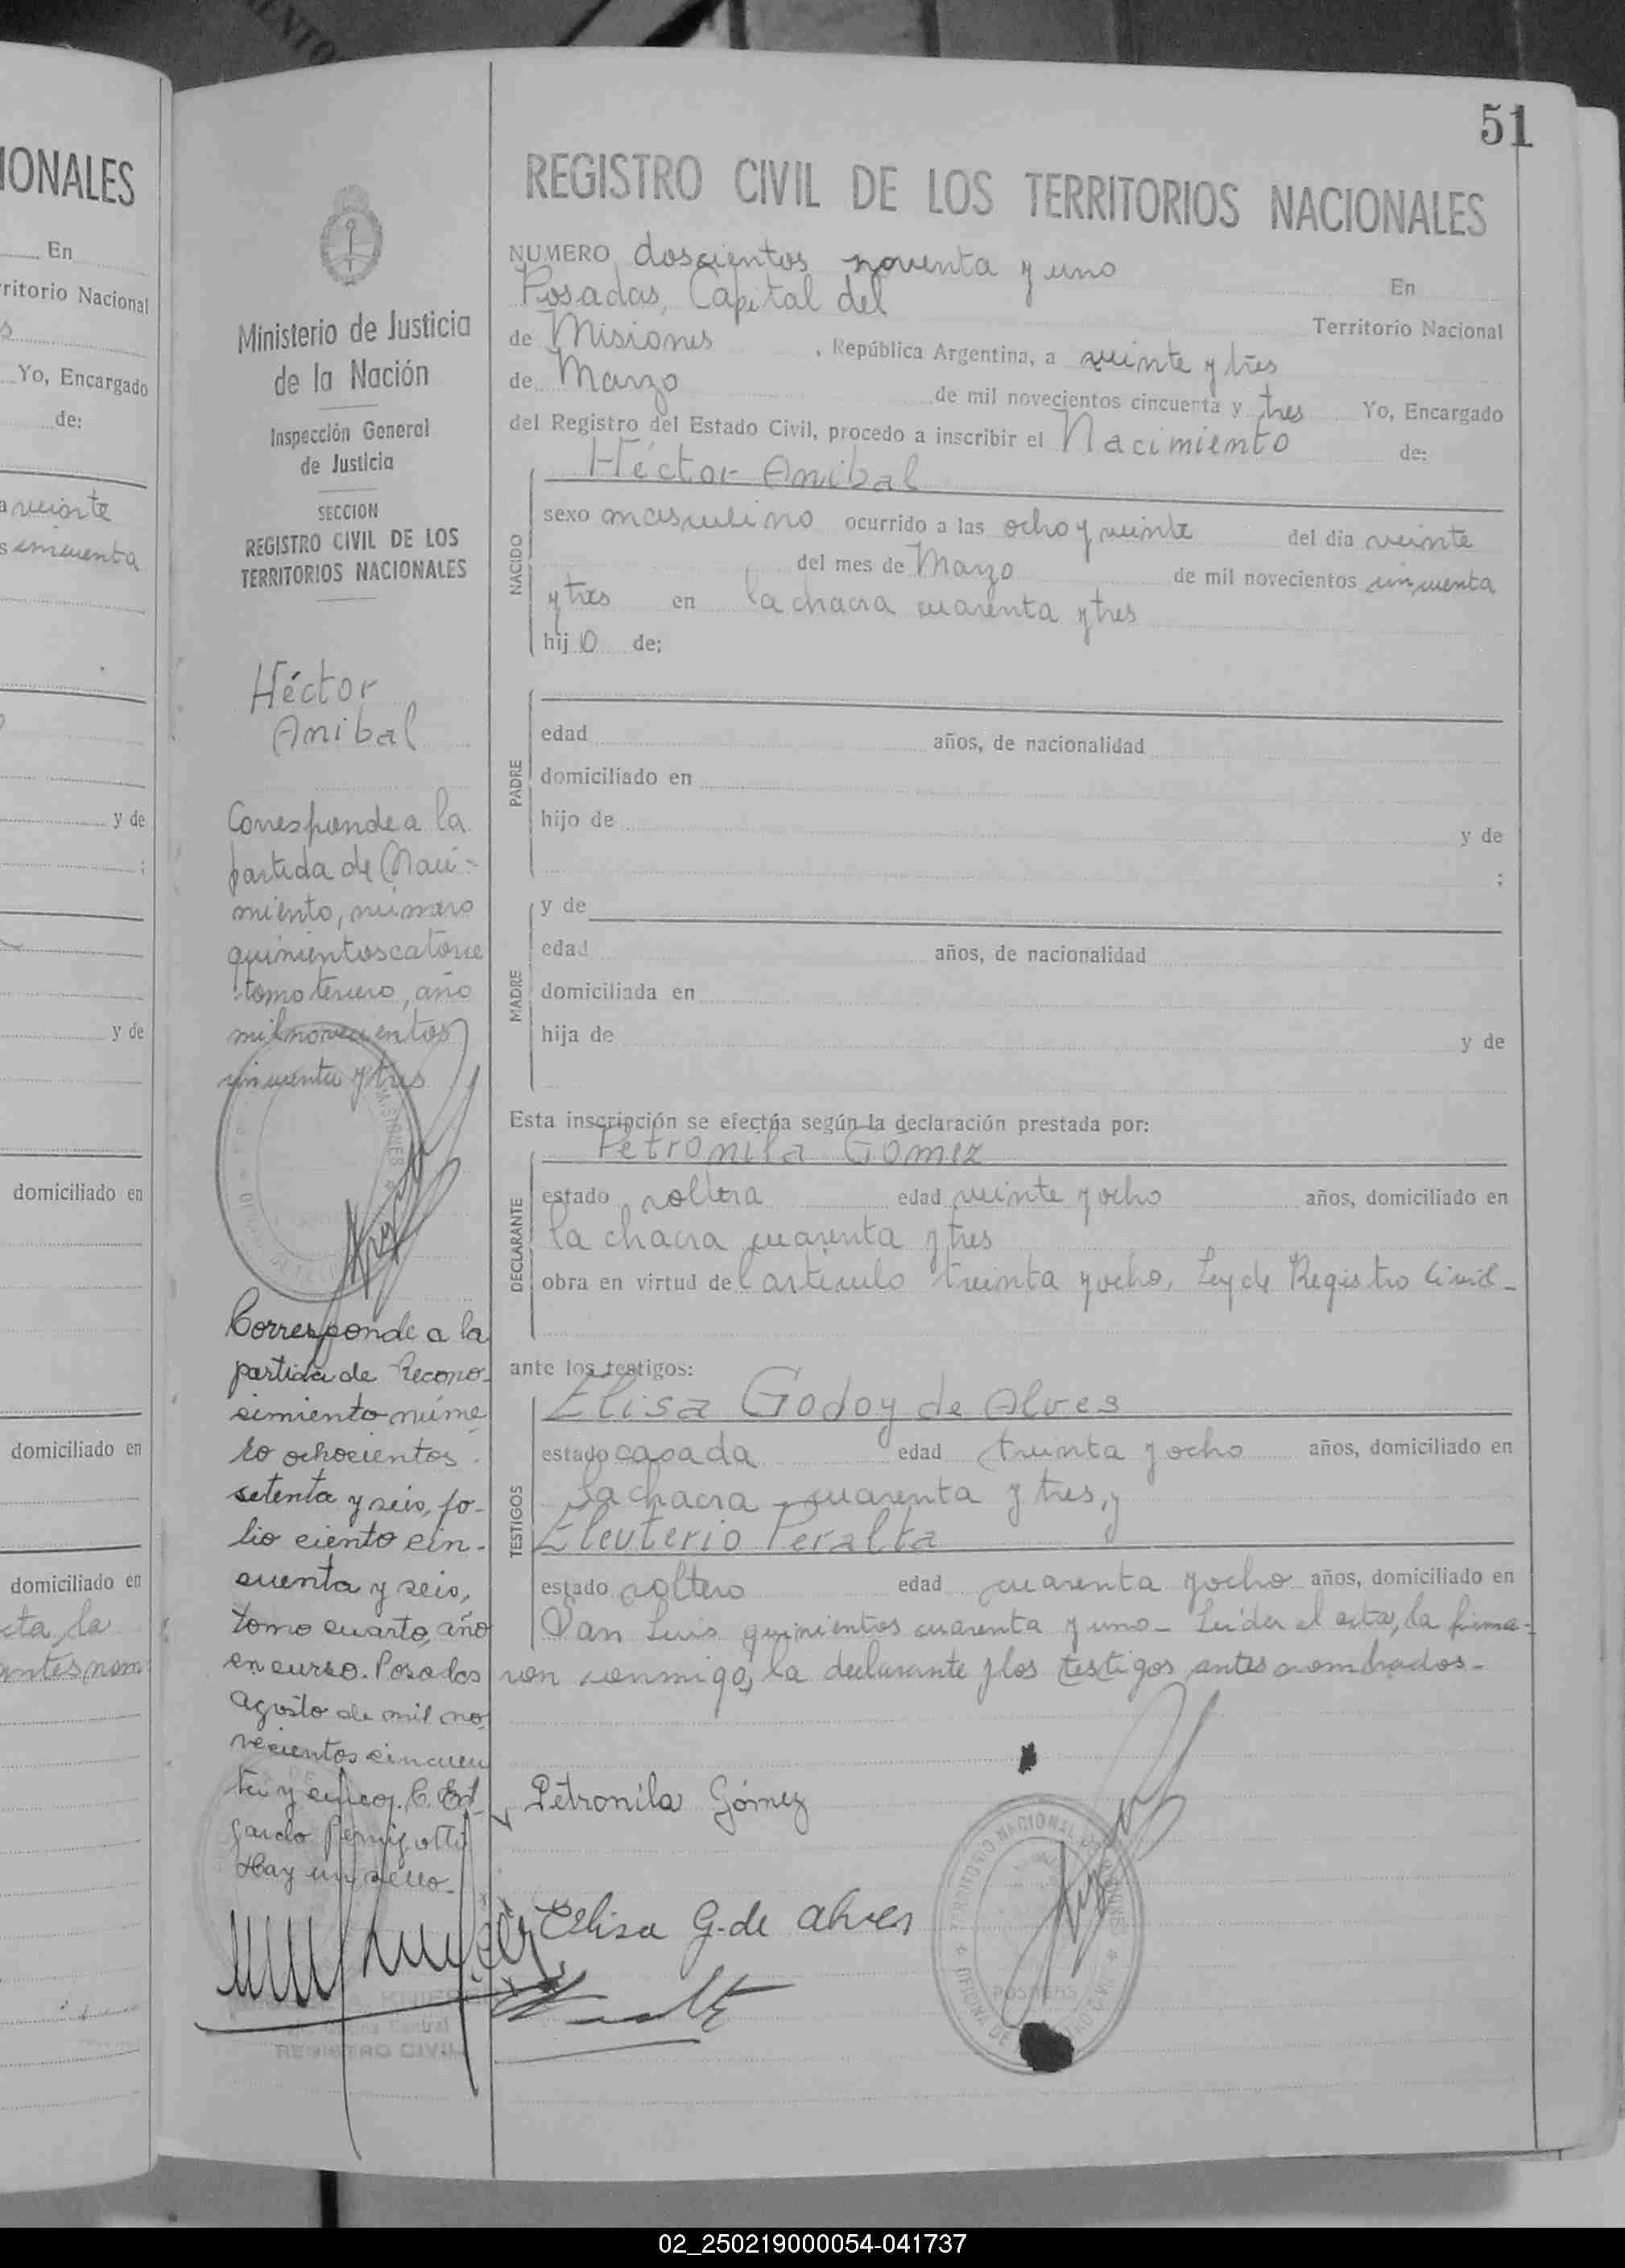 IONALES
En
rritorio Nacional
s
Yo, Encargado
de:
a veinte
s cincuenta
y de
;
y de
domiciliado en
domiciliado en
domiciliado en
cta, la
antes nom
51
Ministerio de Justicia
de la Nación
Inspección General
de Justicia
SECCION
REGISTRO CIVIL DE LOS
TERRITORIOS NACIONALES
Héctor
Anibal
Corresponde a la
partida de Naci-
miento, número
quinientos catorce
tomo tercero, año
mil novecientos
cincuenta y tres
Corresponde a la
partida de Recono-
simiento núme
ro ochocientos
setenta y seis, fo-
lio ciento cin-
cuenta y seis,
tomo cuarto, año
en curso. Posadas
agosto de mil no
vecientos cincuen
ta y cinco. C. Ed
gardo
Hay un sello.
Oficina Central
REGISTRO CIVIL
REGISTRO CIVIL DE LOS TERRITORIOS NACIONALES
NUMERO doscientos noventa y uno En
Posadas, Capital del Territorio Nacional
de Misiones, República Argentina, a veinte y tres
de Marzo de mil novecientos cincuenta y tres Yo, Encargado
del Registro del Estado Civil, procedo a inscribir el Nacimiento de:
Héctor Anibal
NACIDO
sexo masculino ocurrido a las ocho y veinte del día veinte
del mes de Marzo de mil novecientos cincuenta
y tres en la chacra cuarenta y tres
hijo de;
PADRE
edad años, de nacionalidad
domiciliado en
hijo de y de
;
MADRE
y de
edad años, de nacionalidad
domiciliada en
hija de y de
Esta inscripción se efectúa según la declaración prestada por:
Petronila Gomez
DECLARANTE
estado soltera edad veinte y ocho años, domiciliado en
la chacra cuarenta y tres
obra en virtud del artículo treinta y ocho, Ley de Registro Civil-
ante los testigos:
Elisa Godoy de Alves
TESTIGOS
estado casada edad treinta y ocho años, domiciliado en
la chacra cuarenta y tres, y
Eleuterio Peralta
estado soltero edad cuarenta y ocho años, domiciliado en
San Luis quinientos cuarenta y uno- Leída el acta, la firma-
ron conmigo, la declarante y los testigos antes nombrados-
Petronila Gómez
Elisa G. de Alves
TERRITORIO NACIONAL DE MISIONES
POSADAS
OFICINA DE REGISTRO CIVIL
02_250219000054-041737